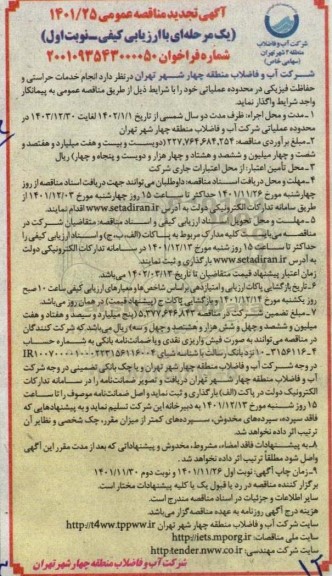 آگهی تجدید مناقصه عمومی ۱۴۰۱/۲۵
(یک مرحله‌ای با ارزیابی کیفی - نوبت اول)
شماره فراخوان ۲۰۰۱۰۹۳۵۴۳۰۰۰۰۵۰
شرکت آب و فاضلاب
منطقه ۴ شهر تهران
(سهامی خاص)
شرکت آب و فاضلاب منطقه چهار شهر تهران در نظر دارد انجام خدمات حراستی و
حفاظت فیزیکی در محدوده عملیاتی خود را با شرایط ذیل از طریق مناقصه عمومی به پیمانکار
واجد شرایط واگذار نماید.
۱- مدت و محل اجراء: ظرف مدت دو سال شمسی از تاریخ ۱۴۰۲/۱/۱ لغایت ۱۴۰۳/۱۲/۳۰ در
محدوده عملیاتی شرکت آب و فاضلاب منطقه چهار شهر تهران
۲- مبلغ برآوردی مناقصه: ۲۲۷,۷۶۴,۶۸۴,۲۵۴ (دویست و بیست و هفت میلیارد و هفتصد و
شصت و چهار میلیون و ششصد و هشتاد و چهار هزار و دویست و پنجاه و چهار) ریال
۳- محل تأمین اعتبار: از محل اعتبارات جاری شرکت
۴- مهلت و محل دریافت اسناد مناقصه: داوطلبان می‌توانند جهت دریافت اسناد مناقصه از روز
چهارشنبه مورخ ۱۴۰۱/۱۱/۲۶ حداکثر تا ساعت ۱۵ روز چهارشنبه مورخ ۱۴۰۱/۱۲/۰۳ از
طریق سامانه تدارکات الکترونیکی دولت به آدرس www.setadiran.ir اقدام نمایند.
۵- مهلت و محل تحویل اسناد ارزیابی کیفی و اسناد مناقصه: متقاضیان شرکت در
مناقصه می‌بایست کلیه مدارک مربوط به پاکات (الف، ب، ج) و اسناد ارزیابی کیفی را
حداکثر تا ساعت ۱۵ روز شنبه مورخ ۱۴۰۱/۱۲/۱۳ در سامانه تدارکات الکترونیکی دولت
به آدرس www.setadiran.ir بارگذاری و ثبت نمایند.
زمان اعتبار پیشنهاد قیمت متقاضیان تا تاریخ ۱۴۰۲/۰۳/۱۳ می‌باشد.
۶- تاریخ بازگشائی پاکات ارزیابی و امتیازدهی براساس شاخص‌ها و معیارهای ارزیابی کیفی ساعت ۱۰ صبح
روز یکشنبه مورخ ۱۴۰۱/۱۲/۱۴ و بازگشائی پاکات ج (پیشنهاد قیمت) در همان روز می‌باشد.
۷- مبلغ تضمین شرکت در مناقصه ۵,۳۷۷,۶۴۶,۸۴۳ (پنج میلیارد و سیصد و هفتاد و هفت
میلیون و ششصد و چهل و شش هزار و هشتصد و چهل و سه) ریال می‌باشد که شرکت کنندگان
در مناقصه می‌توانند به صورت فیش واریزی نقدی و یا ضمانت‌نامه بانکی به شماره حساب
در وجه شرکت آب و فاضلاب منطقه چهار شهر تهران و یا چک بانکی تضمینی در وجه شرکت
آب و فاضلاب منطقه چهار شهر تهران دریافت و تصویر ضمانت‌نامه را در سامانه تدارکات
الکترونیک دولت در پاکت (الف) بارگذاری و ثبت نماید و اصل ضمانت‌نامه موصوف را تا ساعت
۱۵ روز شنبه مورخ ۱۴۰۱/۱۲/۱۳ به دبیرخانه این شرکت تسلیم نماید و به پیشنهادهایی که
فاقد سپرده، سپرده‌های مخدوش، سپرده‌های کمتر از میزان مقرر، چک شخصی و نظایر آن
ترتیب اثر داده نخواهد شد.
۸- به پیشنهادات فاقد امضاء، مشروط، مخدوش و پیشنهاداتی که بعد از مدت مقرر این آگهی
واصل شود مطلقاً ترتیب اثر داده نخواهد شد.
۹- زمان چاپ آگهی: نوبت اول ۱۴۰۱/۱۱/۲۶ و نوبت دوم ۱۴۰۱/۱۱/۳۰
برگزار کننده مناقصه در رد یا قبول یک یا کلیه پیشنهادات مختار است.
سایر اطلاعات و جزئیات در اسناد مناقصه مندرج است.
هزینه درج آگهی روزنامه به عهده مناقصه‌گزار می‌باشد.
سایت شرکت آب و فاضلاب منطقه چهار شهر تهران http://t4ww.tppww.ir
سایت ملی مناقصات: http://iets.mporg.ir
سایت شرکت مهندسی: http:tender.nww.co.ir
شرکت آب و فاضلاب منطقه چهار شهر تهران